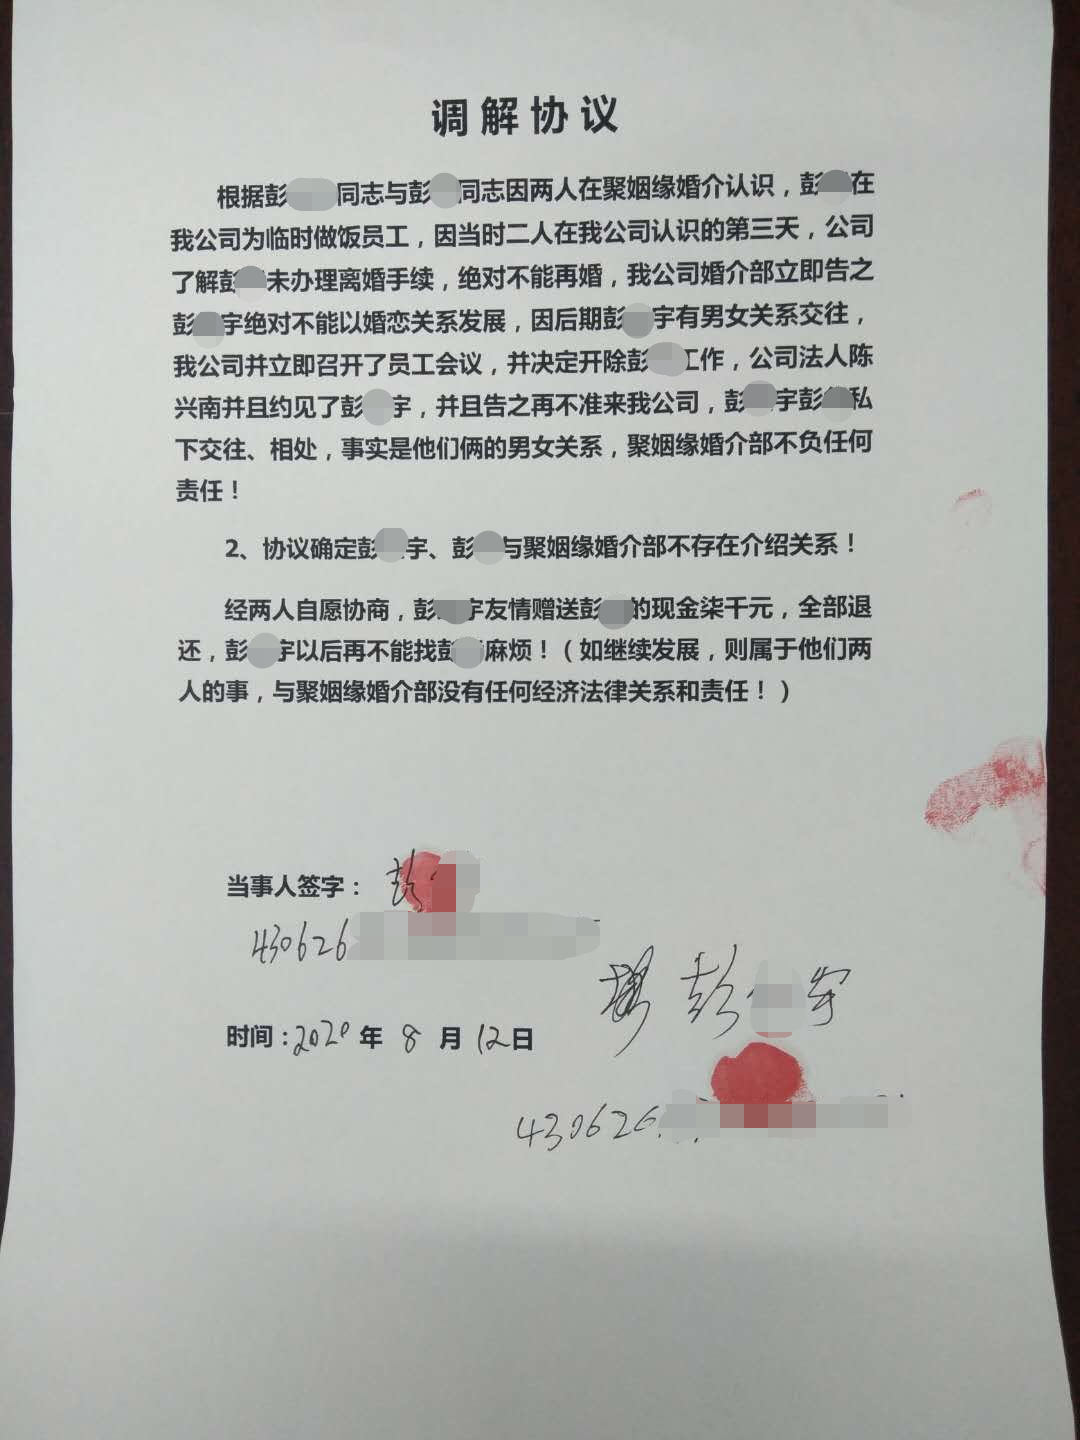 调解协议
根据彭 同志与彭 同志因两人在聚姻缘婚介认识，彭 在
我公司为临时做饭员工，因当时二人在我公司认识的第三天，公司
了解彭 未办理离婚手续，绝对不能再婚，我公司婚介部立即告之
彭 宇绝对不能以婚恋关系发展，因后期彭 宇有男女关系交往，
我公司并立即召开了员工会议，并决定开除彭 工作，公司法人陈
兴南并且约见了彭 宇，并且告之再不准来我公司，彭 宇彭 私
下交往、相处，事实是他们俩的男女关系，聚姻缘婚介部不负任何
责任！
2、协议确定彭 宇、彭 与聚姻缘婚介部不存在介绍关系！
经两人自愿协商，彭 宇友情赠送彭 的现金柒千元，全部退
还，彭 宇以后再不能找彭 麻烦！（如继续发展，则属于他们两
人的事，与聚姻缘婚介部没有任何经济法律关系和责任！）
当事人签字： 彭
430626
彭 宇
时间：2020 年 8 月 12日
430626